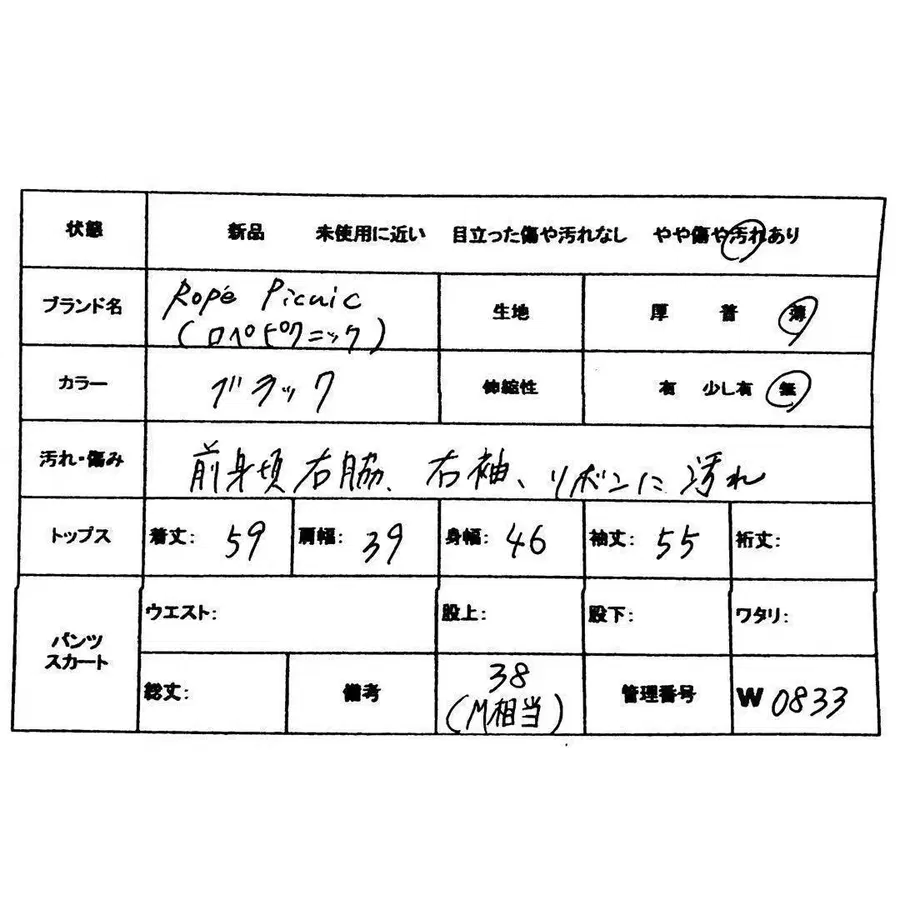 状態 新品 未使用に近い 目立った傷や汚れなし やや傷や汚れあり
ブランド名 Ropé Picnic 生地 厚 普 薄
(ロペピクニック)
カラー ブラック 伸縮性 有 少し有 無
汚れ・傷み 前身頃右脇、右袖、リボンに汚れ
トップス 着丈: 59 肩幅: 39 身幅: 46 袖丈: 55 裄丈:
パンツ ウエスト: 股上: 股下: ワタリ:
スカート 総丈: 備考 38 管理番号 W 0833
(M相当)